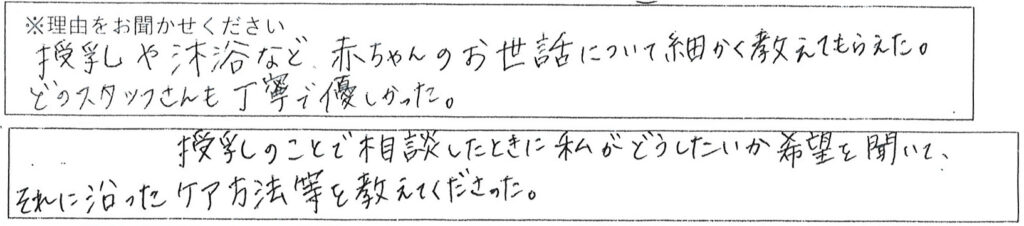 ※理由をお聞かせください
授乳や沐浴など、赤ちゃんのお世話について細かく教えてもらえた。
どのスタッフさんも丁寧で優しかった。
授乳のことで相談したときに私がどうしたいか希望を聞いて、
それに沿ったケア方法等を教えてくださった。